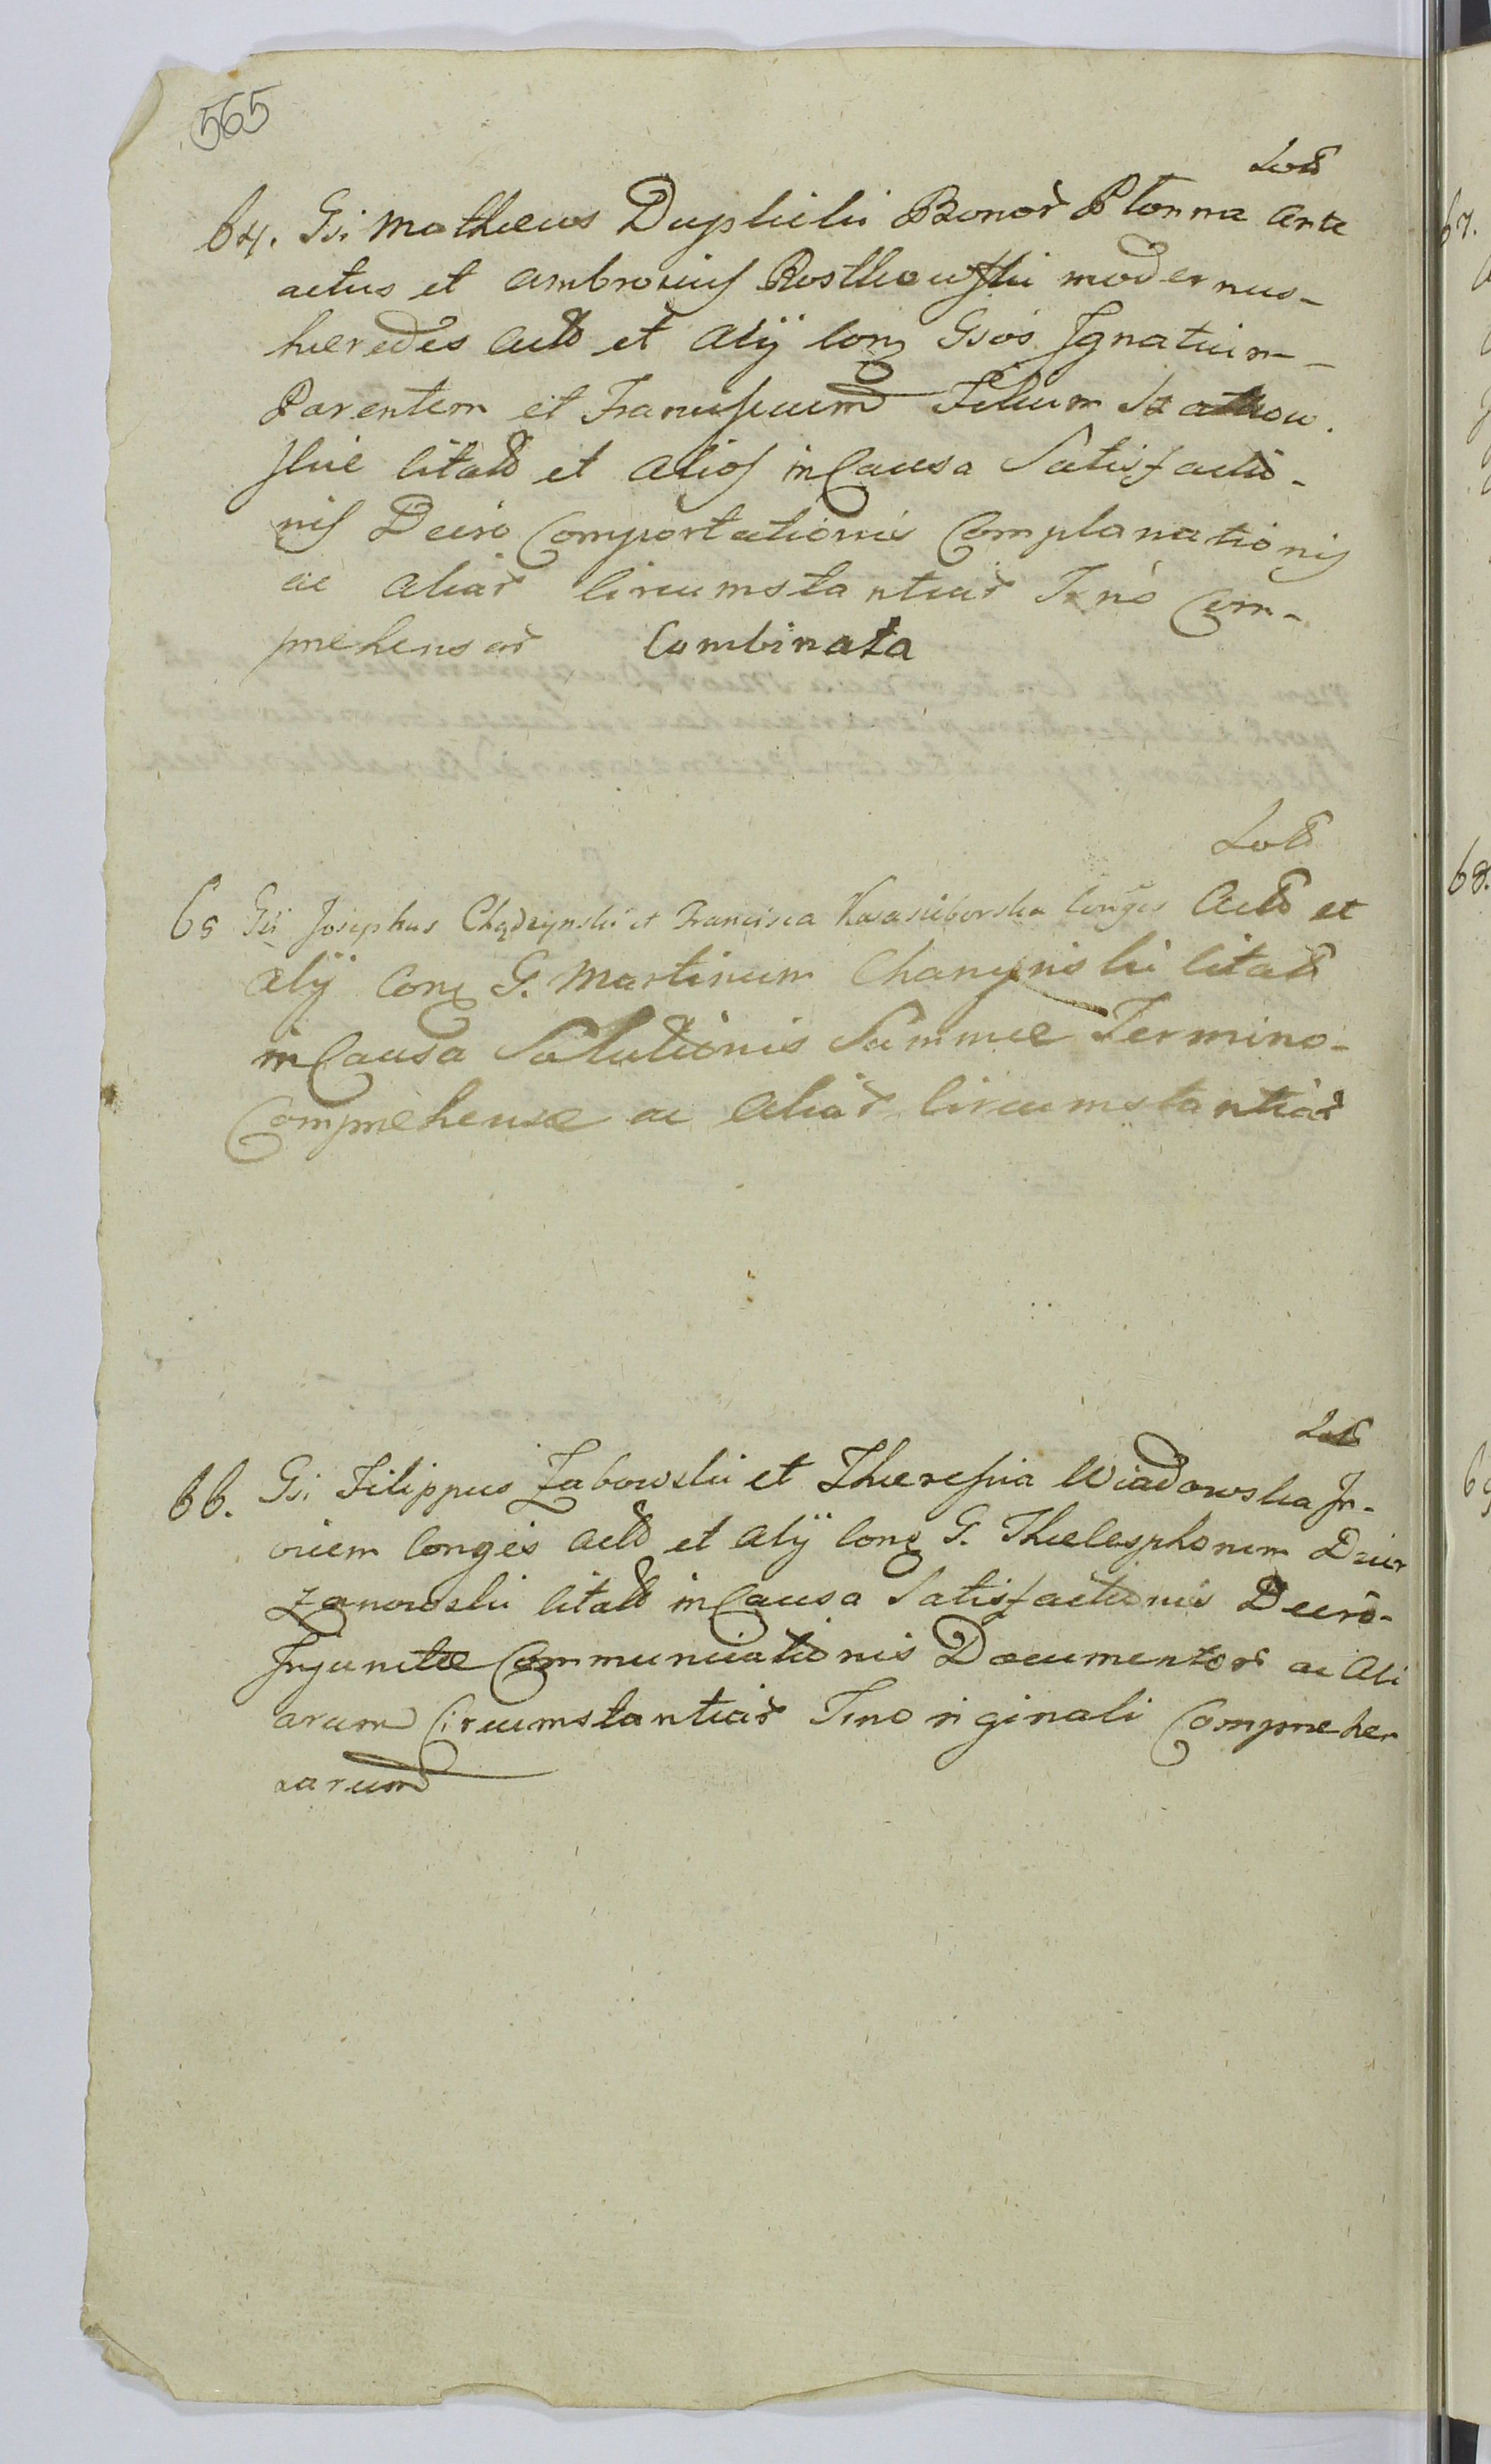 565
Lods
64. Gsi Mathæus Duplicki Bonor̃ Płonna Ante
actus et Ambrosius Rostkowski modernus-
hæredes Acts et Alij Conq Gsos Ignatium-
Parentem et Franciscum Filium Szatkow.
skie Citats et Alios in Causa Satisfactio-
nis Decro Comportationis Complanationis
ac Aliar̃ Circumstantiar̃ Tno Com-
prehensar̃ Combinata
Lods
65 Gsi Josephus Chądzynski et Francisca Kosasciborska Conges Acts et
Alij Conq G. Martinum Chamynski Citats
in Causa Solutionis Summæ Termino-
Comprehensæ ac Aliar̃ Circumstantiar̃
Lods
66. Gsi Filippus Zabowski et Theresia Wiadowska In-
vicem Conges Acts et Alij Conq G. Thelesphorum Drier
zanowski Citats in Causa Satisfactionis Decro-
Injunctæ Communicationis Documentor̃ ac Ali
arum Circumstantiar̃ Tno riginali Comprehen
sarum
67.
68.
69